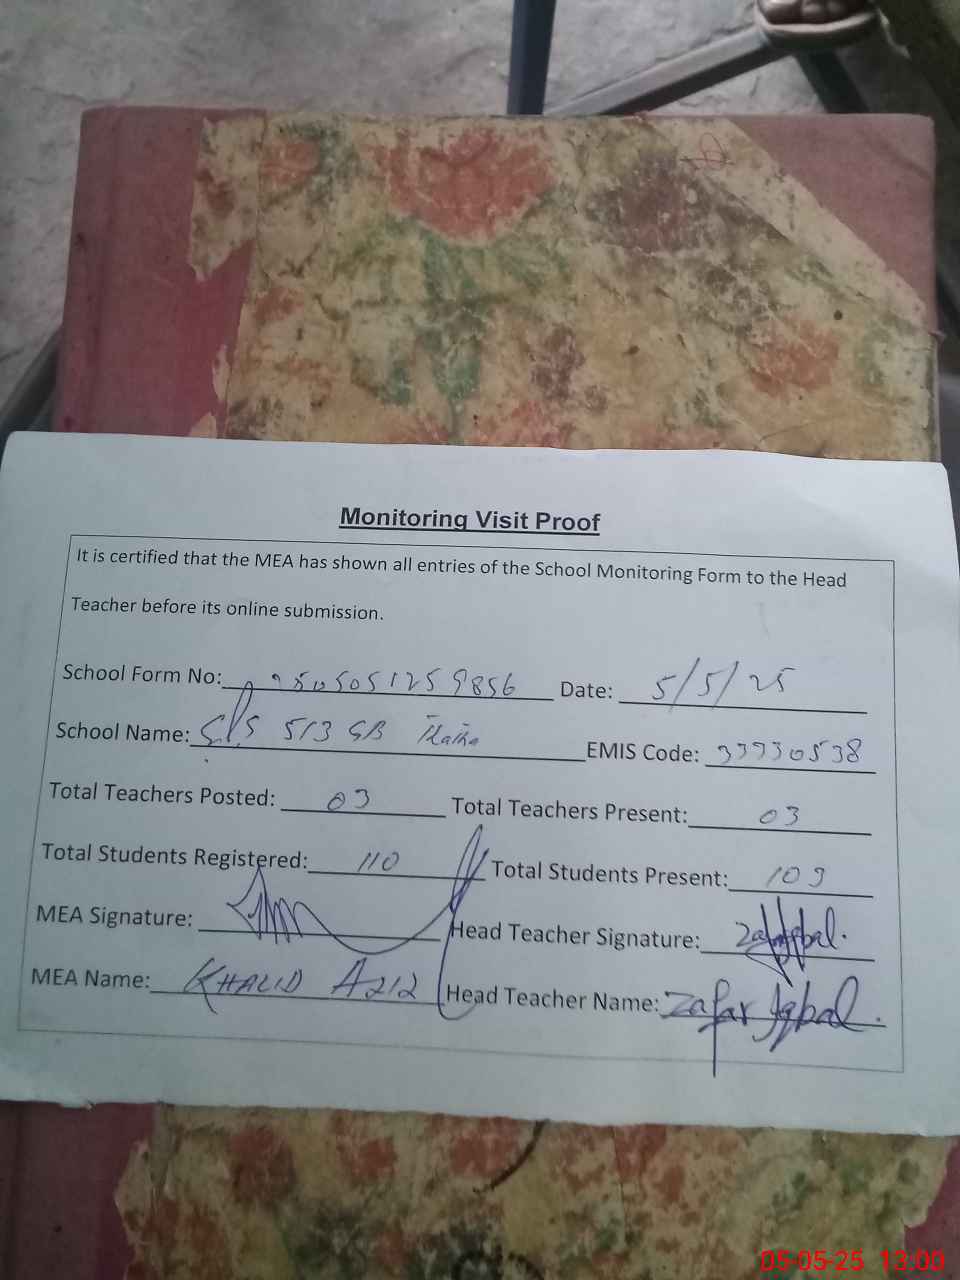 Monitoring Visit Proof
It is certified that the MEA has shown all entries of the School Monitoring Form to the Head
Teacher before its online submission.
School Form No: Date: 5/5/25
School Name: 513 GB EMIS Code: 33330538
Total Teachers Posted: 03 Total Teachers Present: 03
Total Students Registered: 110 Total Students Present: 103
MEA Signature: Head Teacher Signature:
MEA Name: KHALID AZIZ Head Teacher Name: Zafar Iqbal.
05-05-25 13:00